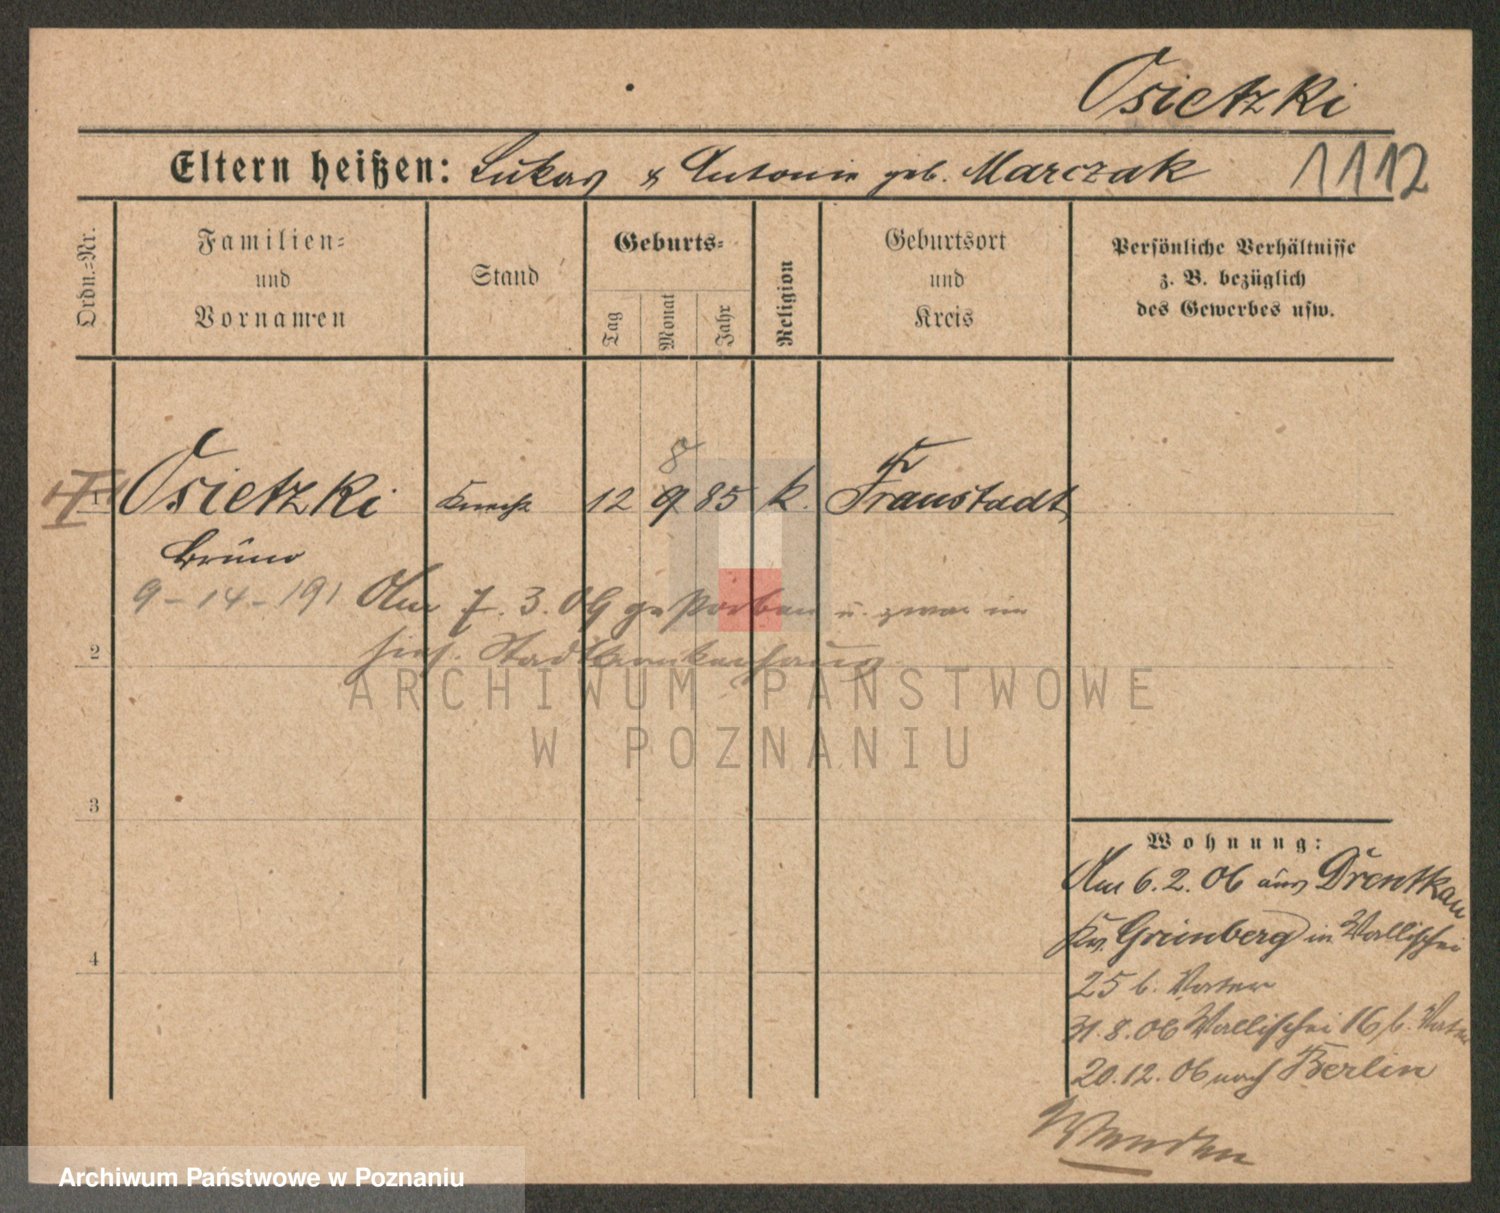 Osietzki
Eltern heißen: Lukas & Antonie geb. Marczak 1112
Ordn.=Nr.
Familien=
und
Vornamen
Stand
Geburts=
Tag
Monat
Jahr
Religion
Geburtsort
und
Kreis
Persönliche Verhältnisse
z. B. bezüglich
des Gewerbes usw.
8
Osietzki Knecht 12 9 85 k. Fraustadt
Bruno
9-14-191 Am 7. 3. 09 gestorben u. zwar im
2 hies. Stadtkrankenhaus
ARCHIWUM PAŃSTWOWE
W POZNANIU
3
Wohnung:
Am 6.2.06 aus Drentkau
Kr. Grünberg in Wallischei
4
25 b. Vater
31.8.06 Wallischei 16 b. Vater
20.12.06 nach Berlin
Wenden
Archiwum Państwowe w Poznaniu